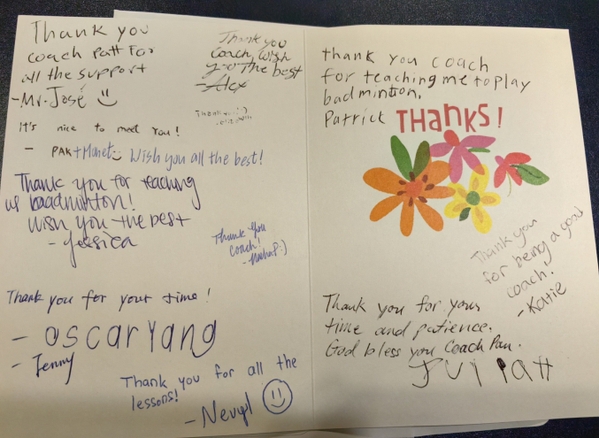 Thank you
coach Patt For
all the support
- Mr. José
Thank you
Coach wish
you the best
- Alex
Thank you :)
It's nice to meet you!
- PAK+Manet
Wish you all the best!
Thank you for teaching
us baadminton!
wish you the best
- Jessica
Thank you
coach!
Thank you for your time!
- oscaryang
- Jenny
Thank you for all the
lessons!
thank you coach
for teaching me to play
badminton.
Patrick
THANKS!
Thank you
for being a good
coach!
- Katie
Thank you for your
time and patience.
God bless you Coach Pan.